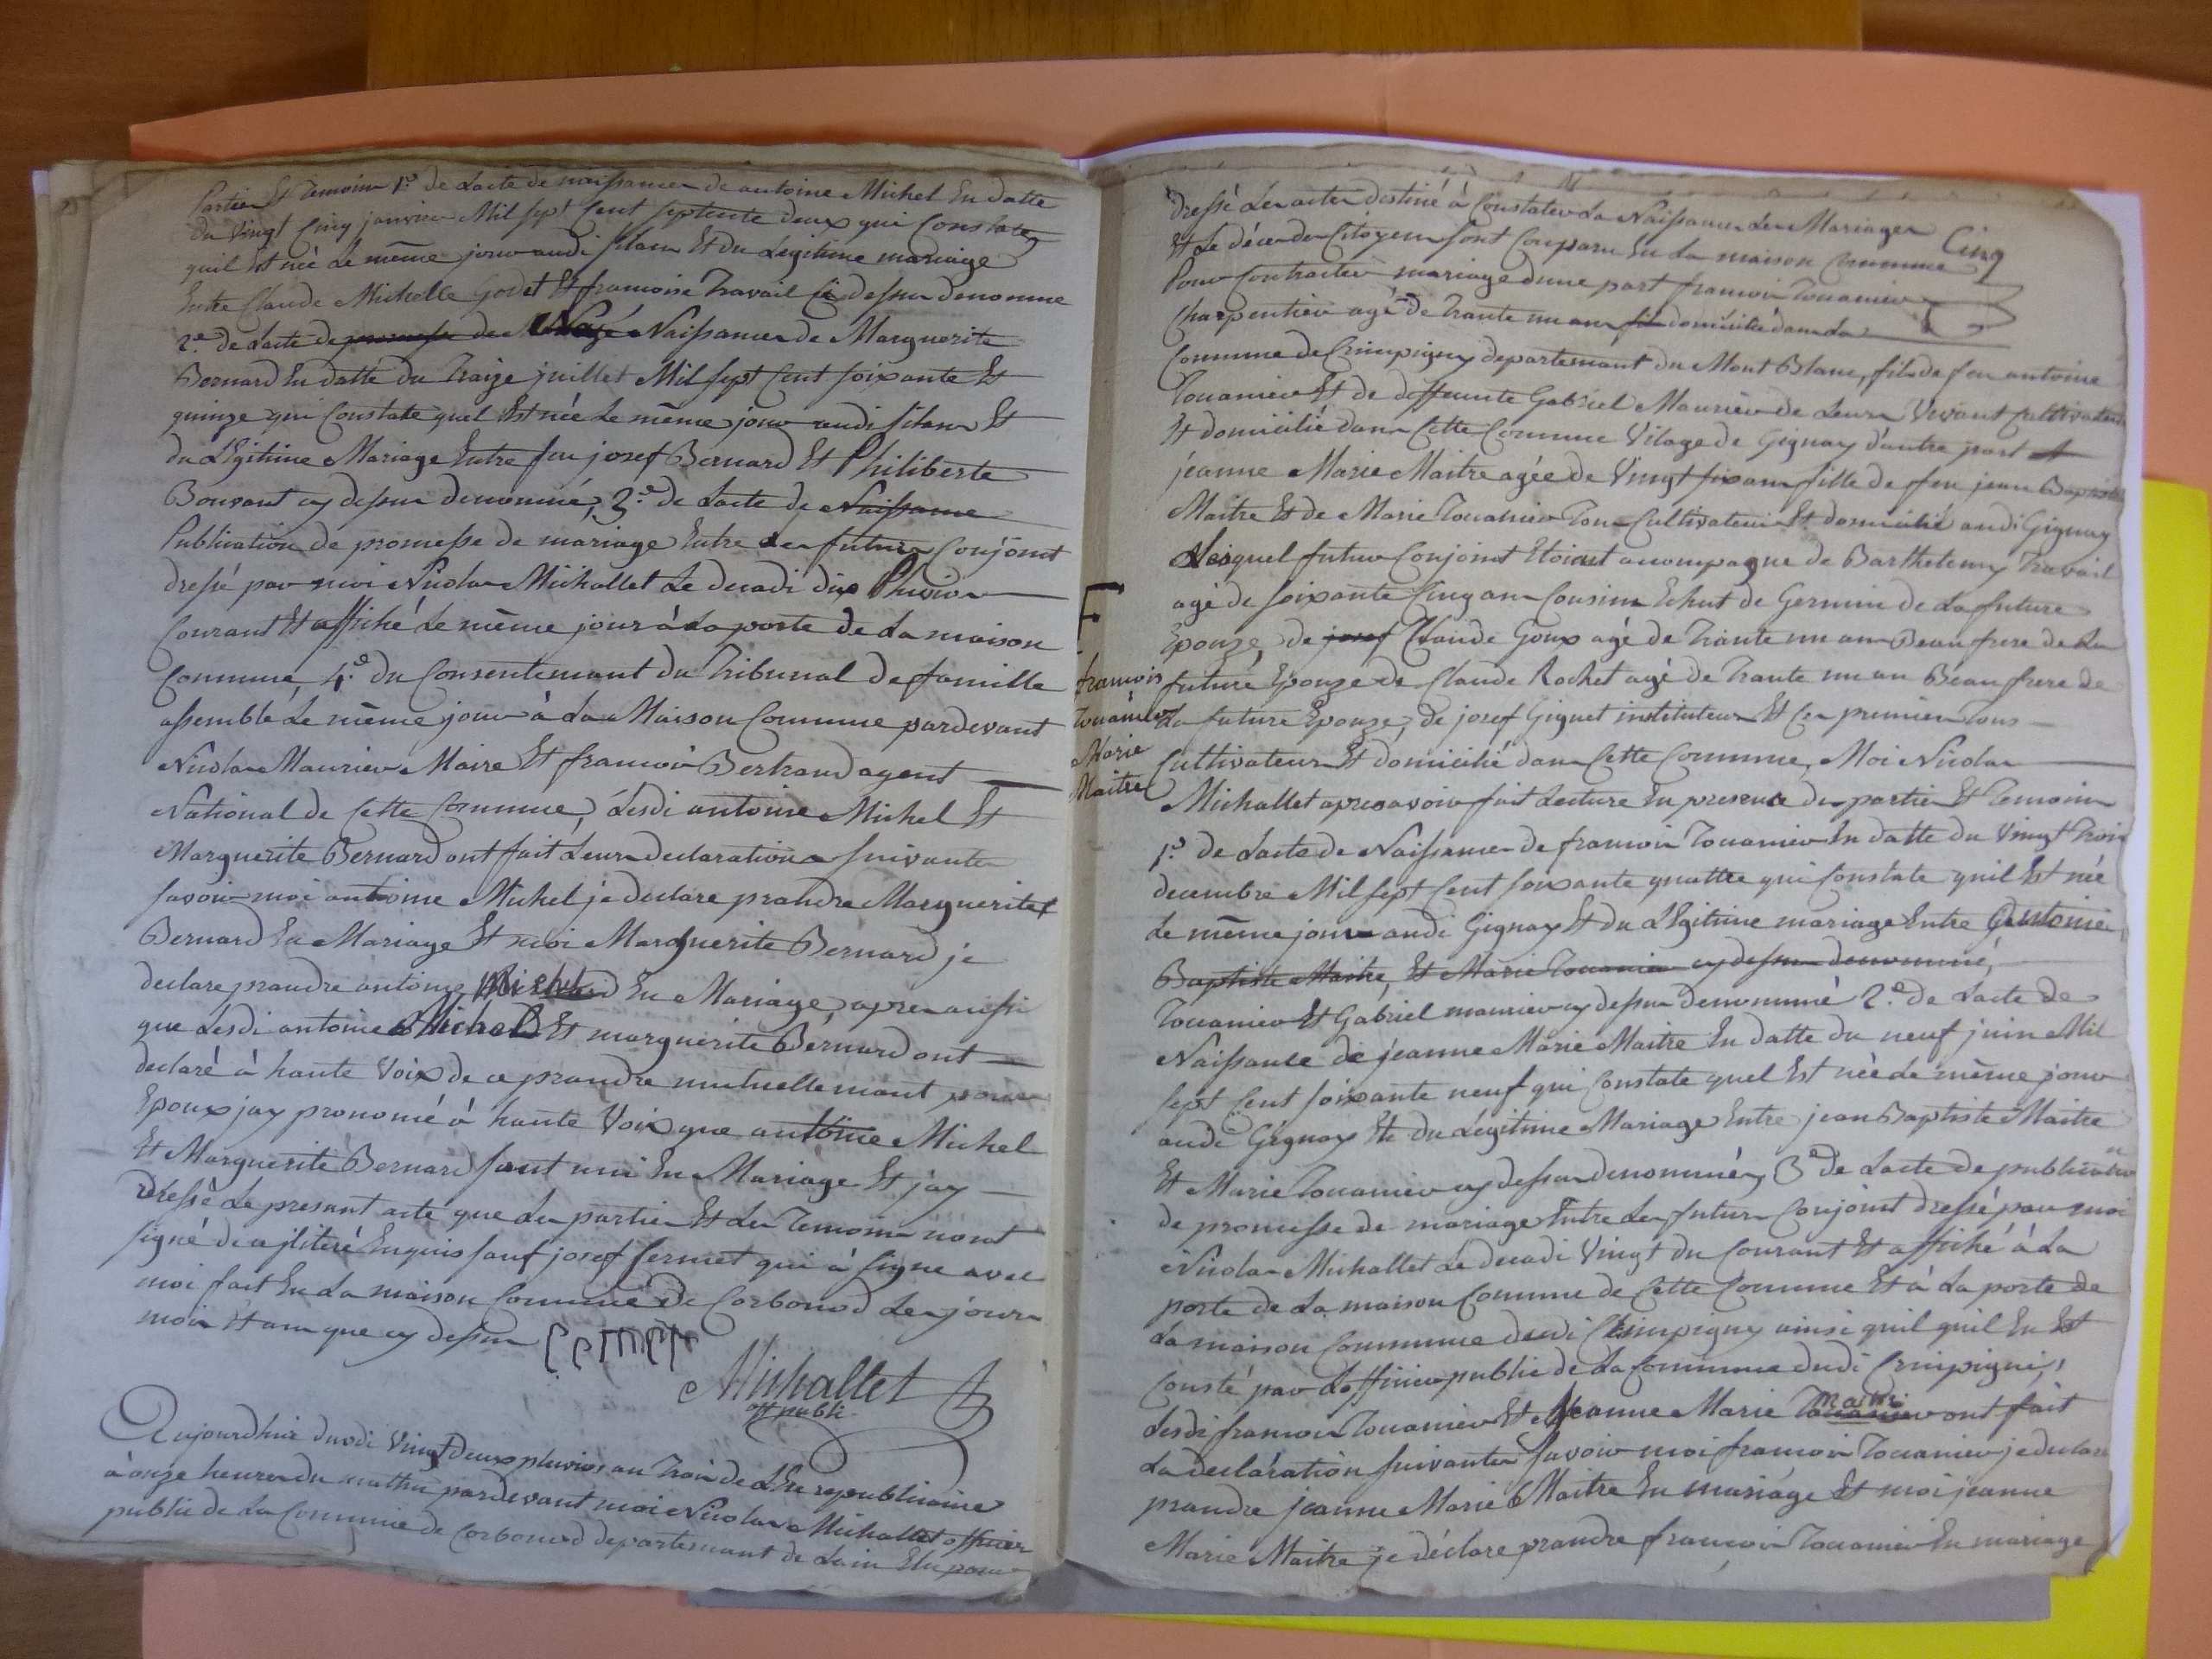 Partie Et Temoin 1.º de Lacte de naissance de antoine Michel En datte
du Vingt Cinq janvier Mil sept Cent septente deux qui Constate
quil Est née Le même jour audi silan Et du Legitime mariage
Entre Claude Michelle Godet Et francoise Travail ci dessus denomme
2.e de Lacte de promesse de Naissance de Marguerite
Bernard En datte du Traize juillet Mil sept Cent soixante Et
quinze qui Constate quel Est née Le même jour audi silan Et
du LEgitime Mariage Entre feu josef Bernard Et Philiberte
Bouvant cy dessus denommé, 3.e de Lacte de Naissance
Publication de promesse de mariage Entre Les futurs Conjoint
dressé par moi Nicolas Michallet Le decadi dix Pluvios
Courant Et affiché Le même jour à La porte de La maison
Commune, 4.e du Consentemant du Tribunal de famille
assemblé Le même jour à La Maison Commune pardevant
Nicolas Maurier Maire Et francois Bertrand agent
National de Cette Commune, Lesdi antoine Michel Et
Marguerite Bernard ont fait Leurs declaration suivante
savoir moi antoine Michel je declare prandre Marguerite
Bernard En Mariage Et moi Marguerite Bernard je
declare prandre antoine Michel En Mariage, apres aussi
que Lesdi antoine Michel Et marguerite Bernard ont
declaré à haute Voix de ce prandre mutuellemant pour
Epoux jay prononcé à haute Voix que antoine Michel
Et Marguerite Bernard sont uni En Mariage Et jay
dressé Le presant acte que Les partie Et Les Temoins nont
signé de ce Enquis sauf josef fermet qui à signe avec
moi fait En La maison Commune de Corbonod Les jour
mois Et an que cy dessus
Michallet
off publi
Aujourdhui duodi Vingt deux pluvios an Trois de LEre republicaine
à onze heures du mathin pardevant moi Nicolas Michallet officier
public de La Commune de Corbonod departemant de Lain Elu pour
dressé Les actes destiné à Constater La Naissance Les Mariages
Et Le déces des Citoyens sont Comparu En La maison Commune
Cinq
Pour Contracter mariage dune part francois Touanier
Charpentier agé de Trante un ans fils domicilié dans La
Commune de Crimpigny departemant du Mont Blanc, fils de feu antoine
Touanier Et de deffunte Gabriel Maurier de Leurs Vivant Cultivateurs
Et domicilié dans Cette Commune Vilage de Gignay d'autre part et
jeanne Marie Maitre agée de Vingt six ans fille de feu jean Baptiste
Maitre Et de Marie Touanier Tous Cultivateur Et domicilié audi Gignay
Lesquel futur Conjoint Etoient acompagne de Barthelemy Travail
agé de soixante Cinq ans Cousin de Germin de La future
Epouze, de josef Claude Goux agé de Trante un an Beau frere de La
future Epouze de Claude Rochet agé de Trante un an Beau frere de
La future Epouze, de josef Giguet instituteur Et Ces premier Tous
Cultivateur Et domicilié dans Cette Commune, Moi Nicolas
francois
Touanier
Marie
Maitre
Michallet apres avoir fait Lecture En presence des partie Et Temoins
1.º de Lacte de Naissance de francois Touanier En datte du Vingt Trois
decembre Mil sept Cent soixante quattre qui Constate quil Est née
Le même jour audi Gignay Et du LEgitime mariage Entre antoine
Baptiste Maitre, Et Marie Touanier cy dessus denommé,
Touanier Et Gabriel maurier cy dessus denommé 2.e de Lacte de
Naissance de jeanne Marie Maitre En datte du neuf juin Mil
sept Cent soixante neuf qui Constate quel Est née Le même jour
audi Gignay Et du Légitime Mariage Entre jean Baptiste Maitre
Et Marie Touanier cy dessus denommé, 3.e de Lacte de publication
de promesse de mariage Entre Les futurs Conjoint dressé par moi
Nicolas Michallet Le decadi Vingt du Courant Et affiché à La
porte de La maison Commune de Cette Commune Et à La porte de
La maison Commune dudi Crimpigny ainsi quil quil En Est
Consté par Lofficier public de La Commune dudi Crimpigni,
Lesdi francois Touanier Et Jeanne Marie Touanier maitre ont fait
La declaration suivante savoir moi francois Touanier je declare
prandre jeanne Marie Maitre En mariage Et moi jeanne
Marie Maitre je déclare prandre francois Touanier En mariage